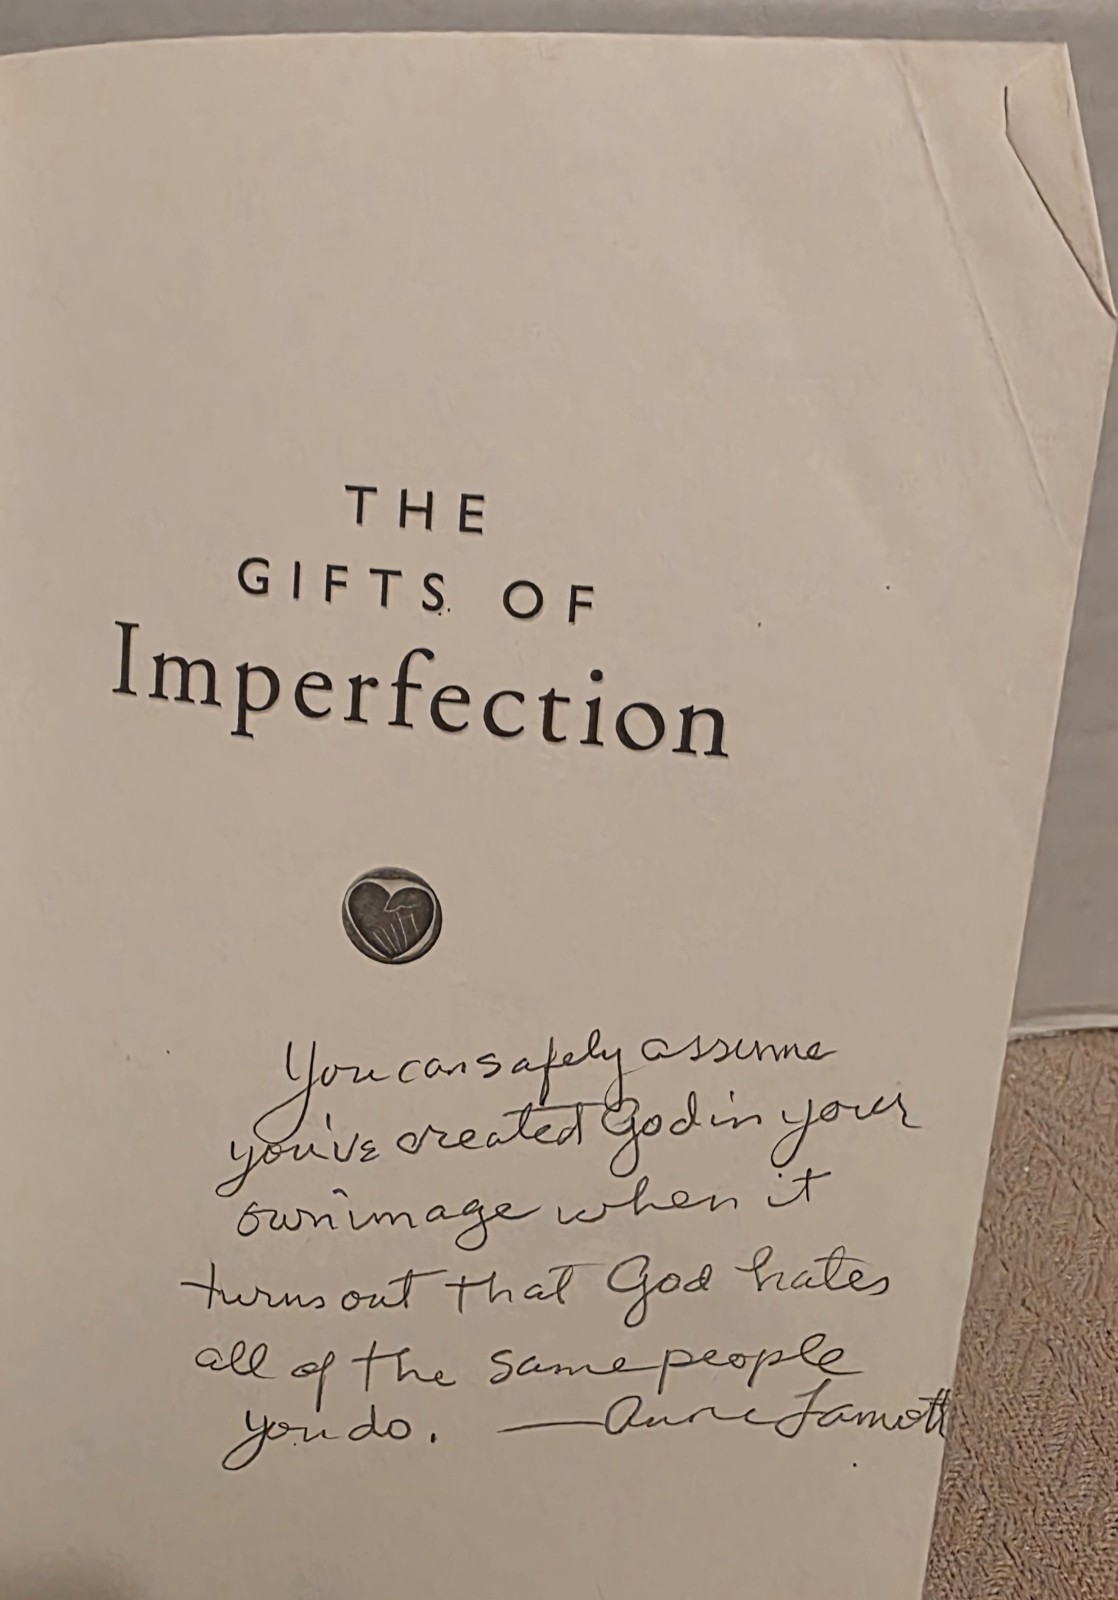 THE
GIFTS OF
Imperfection
You can safely assume
you've created God in your
own image when it
turns out that God hates
all of the same people
you do. —Anne Lamott